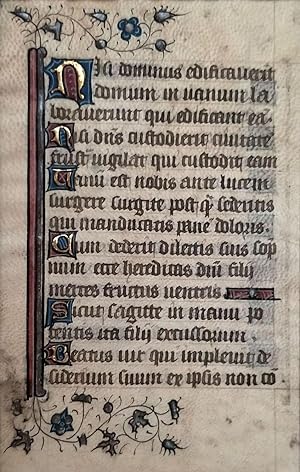 Nisi dominus edificaverit
domum in uanum la
boraverunt qui edificant eā.
Nisi dn̄s custodierit ciuitatē
frust̄ uigilat qui custodit eam
Uanū est nobis ante lucem
surgere surgite postq̄ sederitis
qui manducatis panē doloris.
Cum dederit dilectis suis som
num ecce hereditas dn̄i filij
merces fructus uentris.
Sicut sagitte in manu po
tentis ita filij excussorum.
Beatus uir qui impleuit de
siderium suum ex ipsis non cō